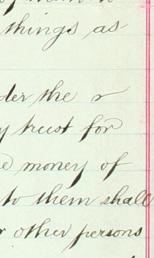 things as
der the r
y trust for
d money of
to them shall
r other persons